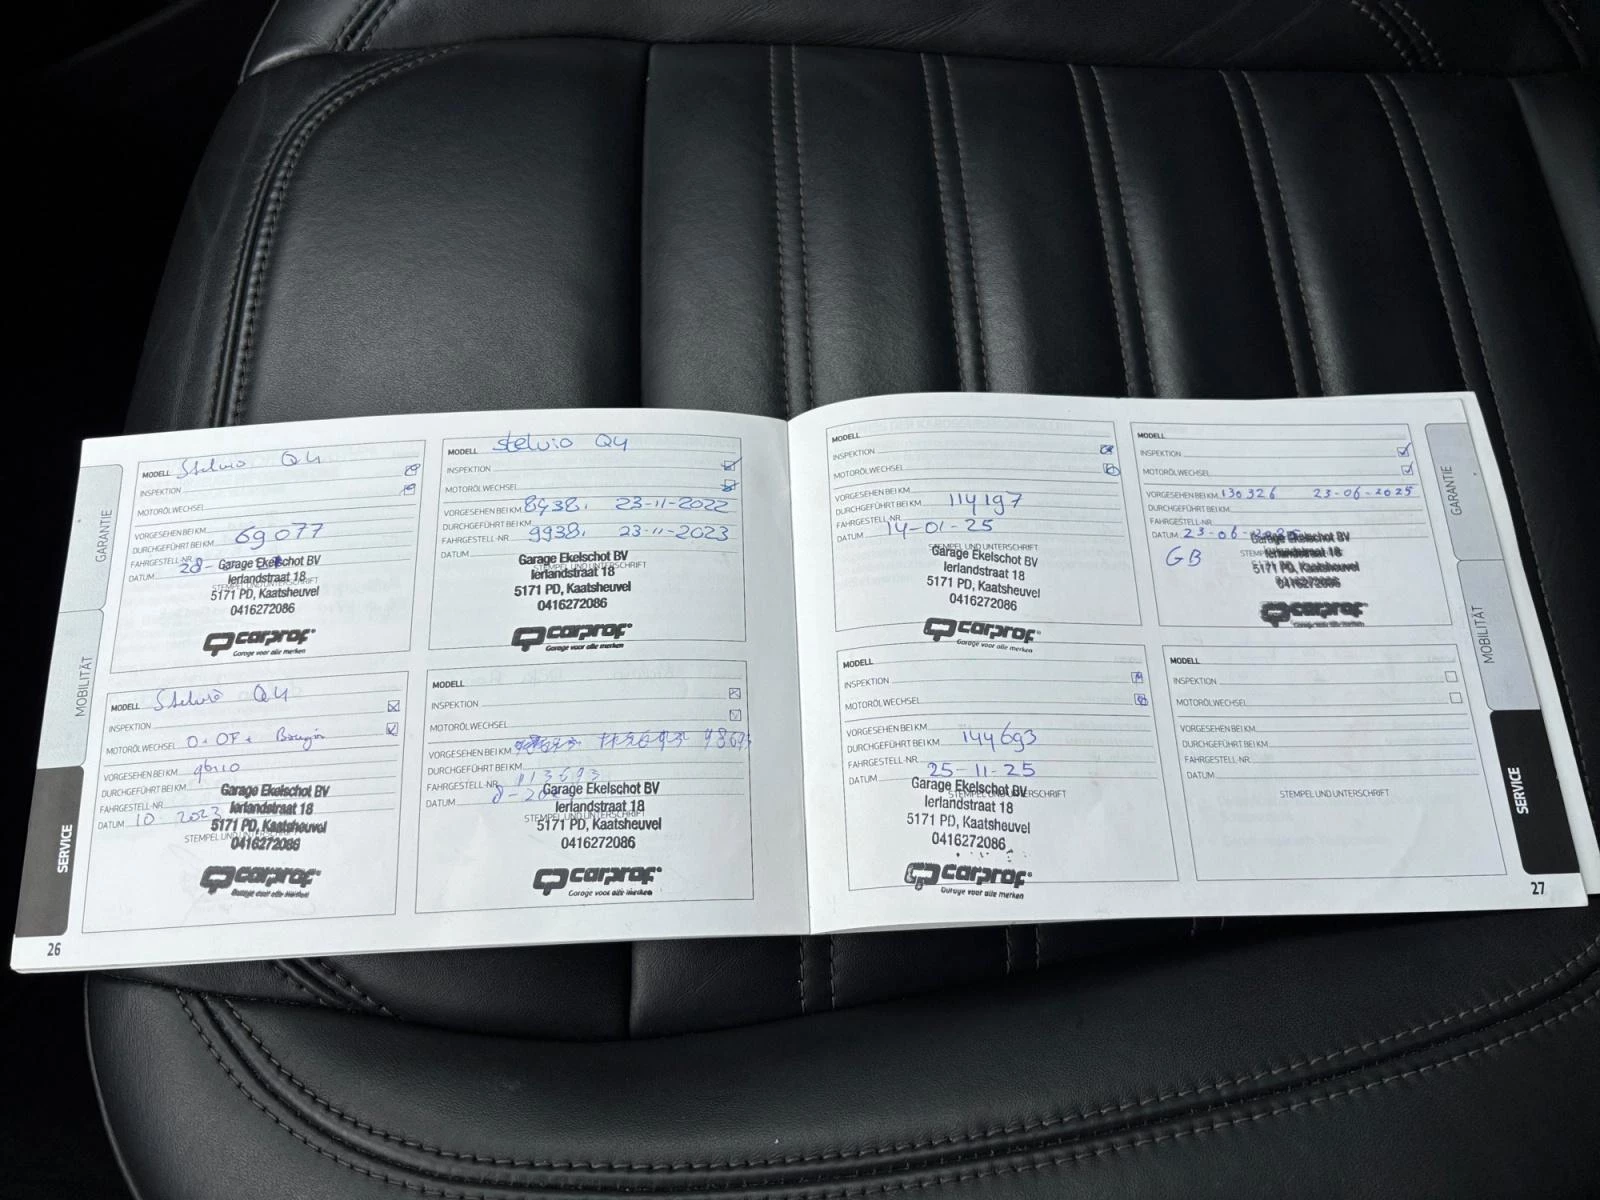 MODELL Stelvio Q4
INSPEKTION
MOTORÖLWECHSEL
VORGESEHEN BEI KM
DURCHGEFÜHRT BEI KM 69077
FAHRGESTELL-NR.
DATUM 28-
STEMPEL UND UNTERSCHRIFT
Garage Ekelschot BV
Ierlandstraat 18
5171 PD, Kaatsheuvel
0416272086
carprof
Garage voor alle merken
MODELL Stelvio Q4
INSPEKTION
MOTORÖLWECHSEL
VORGESEHEN BEI KM 8438. 23-11-2022
DURCHGEFÜHRT BEI KM
FAHRGESTELL-NR. 9938. 23-11-2023
DATUM
STEMPEL UND UNTERSCHRIFT
Garage Ekelschot BV
Ierlandstraat 18
5171 PD, Kaatsheuvel
0416272086
carprof
Garage voor alle merken
MODELL Stelvio Q4
INSPEKTION
MOTORÖLWECHSEL O + OF +
VORGESEHEN BEI KM
DURCHGEFÜHRT BEI KM
FAHRGESTELL-NR.
DATUM 10 2023
STEMPEL UND UNTERSCHRIFT
Garage Ekelschot BV
Ierlandstraat 18
5171 PD, Kaatsheuvel
0416272086
carprof
Garage voor alle merken
MODELL
INSPEKTION
MOTORÖLWECHSEL
VORGESEHEN BEI KM
DURCHGEFÜHRT BEI KM
FAHRGESTELL-NR. 113693
DATUM
STEMPEL UND UNTERSCHRIFT
Garage Ekelschot BV
Ierlandstraat 18
5171 PD, Kaatsheuvel
0416272086
carprof
Garage voor alle merken
GARANTIE
MOBILITÄT
SERVICE
26
MODELL
INSPEKTION
MOTORÖLWECHSEL
VORGESEHEN BEI KM
DURCHGEFÜHRT BEI KM 114197
FAHRGESTELL-NR.
DATUM 14-01-25
STEMPEL UND UNTERSCHRIFT
Garage Ekelschot BV
Ierlandstraat 18
5171 PD, Kaatsheuvel
0416272086
carprof
Garage voor alle merken
MODELL
INSPEKTION
MOTORÖLWECHSEL
VORGESEHEN BEI KM 130326 23-06-2025
DURCHGEFÜHRT BEI KM
FAHRGESTELL-NR.
DATUM 23-06-2025
GB
Garage Ekelschot BV
Ierlandstraat 18
5171 PD, Kaatsheuvel
0416272086
carprof
Garage voor alle merken
MODELL
INSPEKTION
MOTORÖLWECHSEL
VORGESEHEN BEI KM
DURCHGEFÜHRT BEI KM 144693
FAHRGESTELL-NR.
DATUM 25-11-25
STEMPEL UND UNTERSCHRIFT
Garage Ekelschot BV
Ierlandstraat 18
5171 PD, Kaatsheuvel
0416272086
carprof
Garage voor alle merken
MODELL
INSPEKTION
MOTORÖLWECHSEL
VORGESEHEN BEI KM
DURCHGEFÜHRT BEI KM
FAHRGESTELL-NR.
DATUM
STEMPEL UND UNTERSCHRIFT
GARANTIE
MOBILITÄT
SERVICE
27